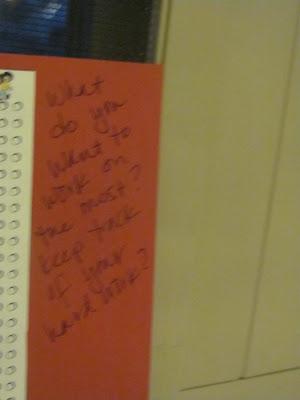 What
do you
want to
work on
the most?
keep track
of your
hard work?